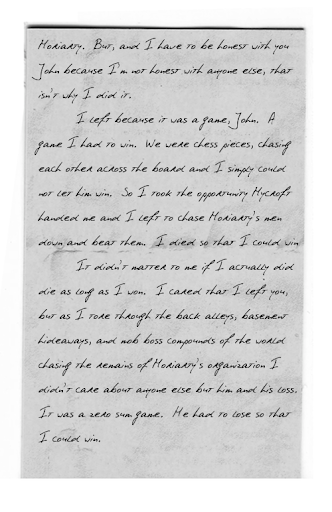 Moriarty. But, and I have to be honest with you
John because I'm not honest with anyone else, that
isn't why I did it.
I left because it was a game, John. A
game I had to win. We were chess pieces, chasing
each other across the board and I simply could
not let him win. So I took the opportunity Mycroft
handed me and I left to chase Moriarty's men
down and beat them. I died so that I could win
It didn't matter to me if I actually did
die as long as I won. I cared that I left you,
but as I tore through the back alleys, basement
hideaways, and mob boss compounds of the world
chasing the remains of Moriarty's organization I
didn't care about anyone else but him and his loss.
It was a zero sum game. He had to lose so that
I could win.